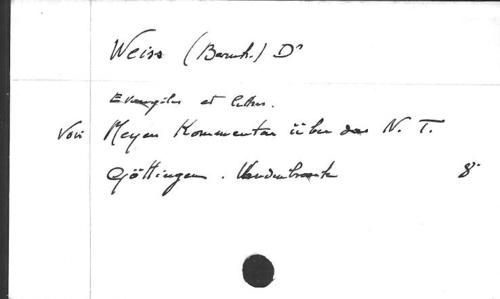 Weiss (Bernh.) Dr
et
Voir Meyer Kommentar über das N. T.
Göttingen. Vandenhoeck 8°